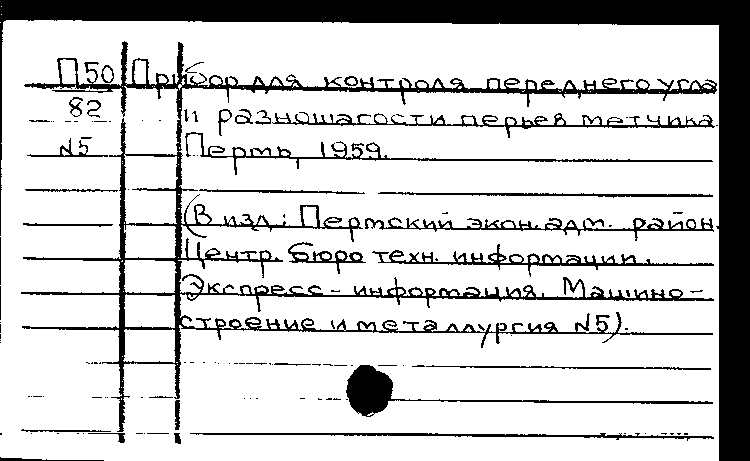 П50 Прибор для контроля переднего угла
82 и разношагости перьев метчика
N5 Пермь, 1959.
(В изд.: Пермский экон. адм. район.
Центр. бюро техн. информации.
Экспресс-информация. Машино-
строение и металлургия N5).